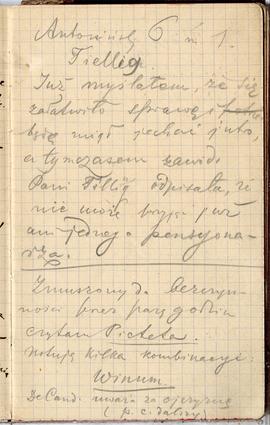 Antonińskiej 6 m 1.
Tiellig.
Już myślałem, że się
załatwiło sprawę i
się miał jechać jutro,
a tymczasem zawód
Pani Tillig odpisała, że
nie może przyjąć już
ani jednego pensjona-
rza.
Zmuszony do bezczyn-
ności przez parę godzin
czytam Picteta.
Notuję kilka kombinacyi:
Winum
DeCand: uważa za ojczyznę
(p. c. dalszy)